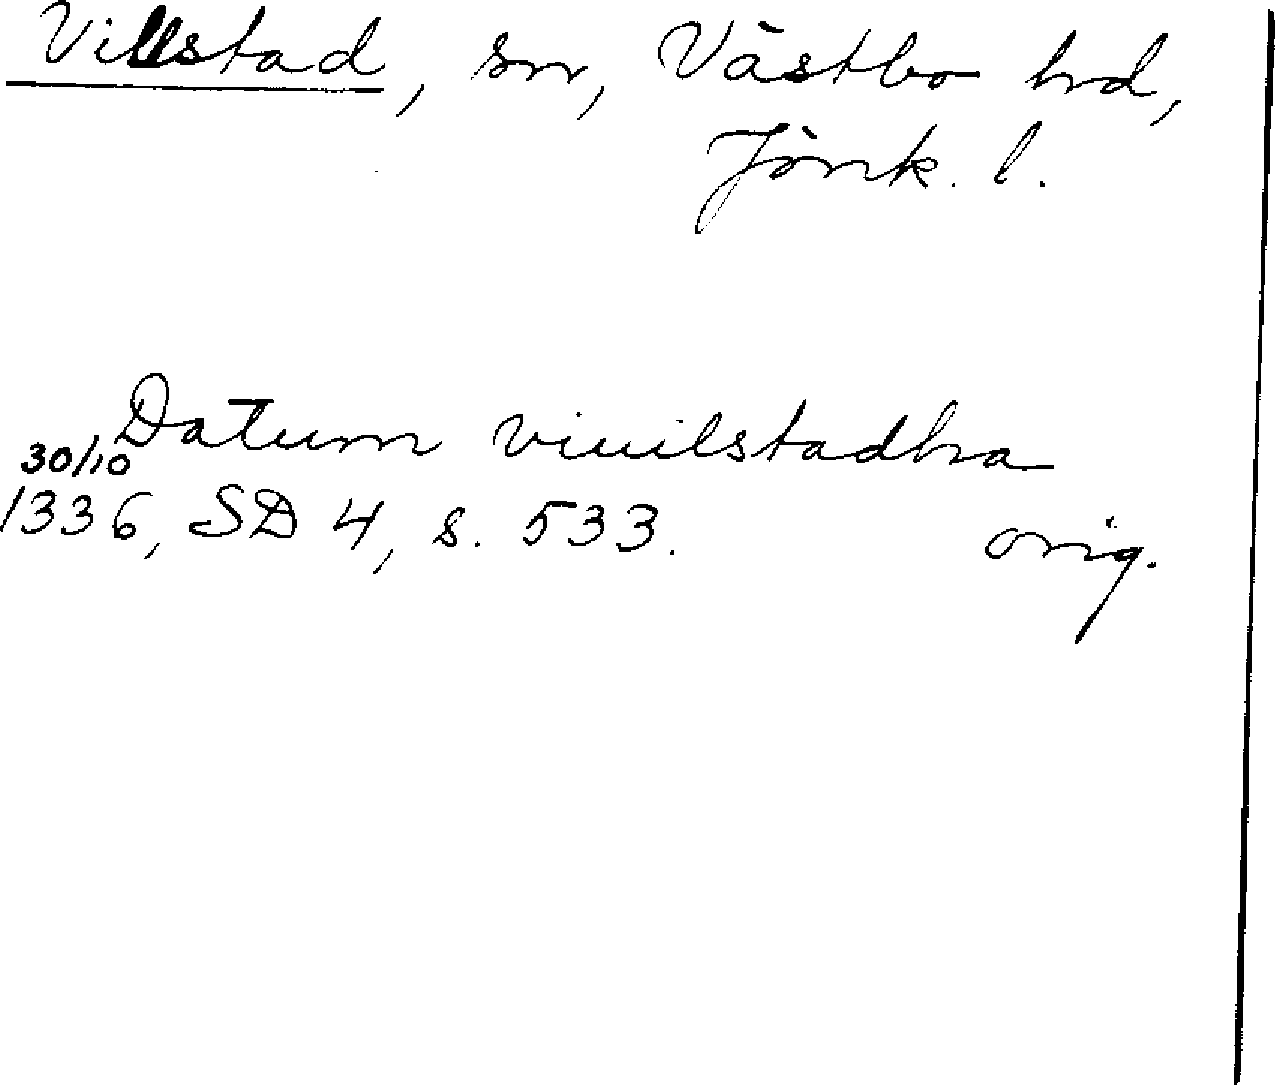 Villstad, sn, Västbo hd,
Jönk. l.
Datum viuilstadha
30/10
1336, SD 4, s. 533. orig.